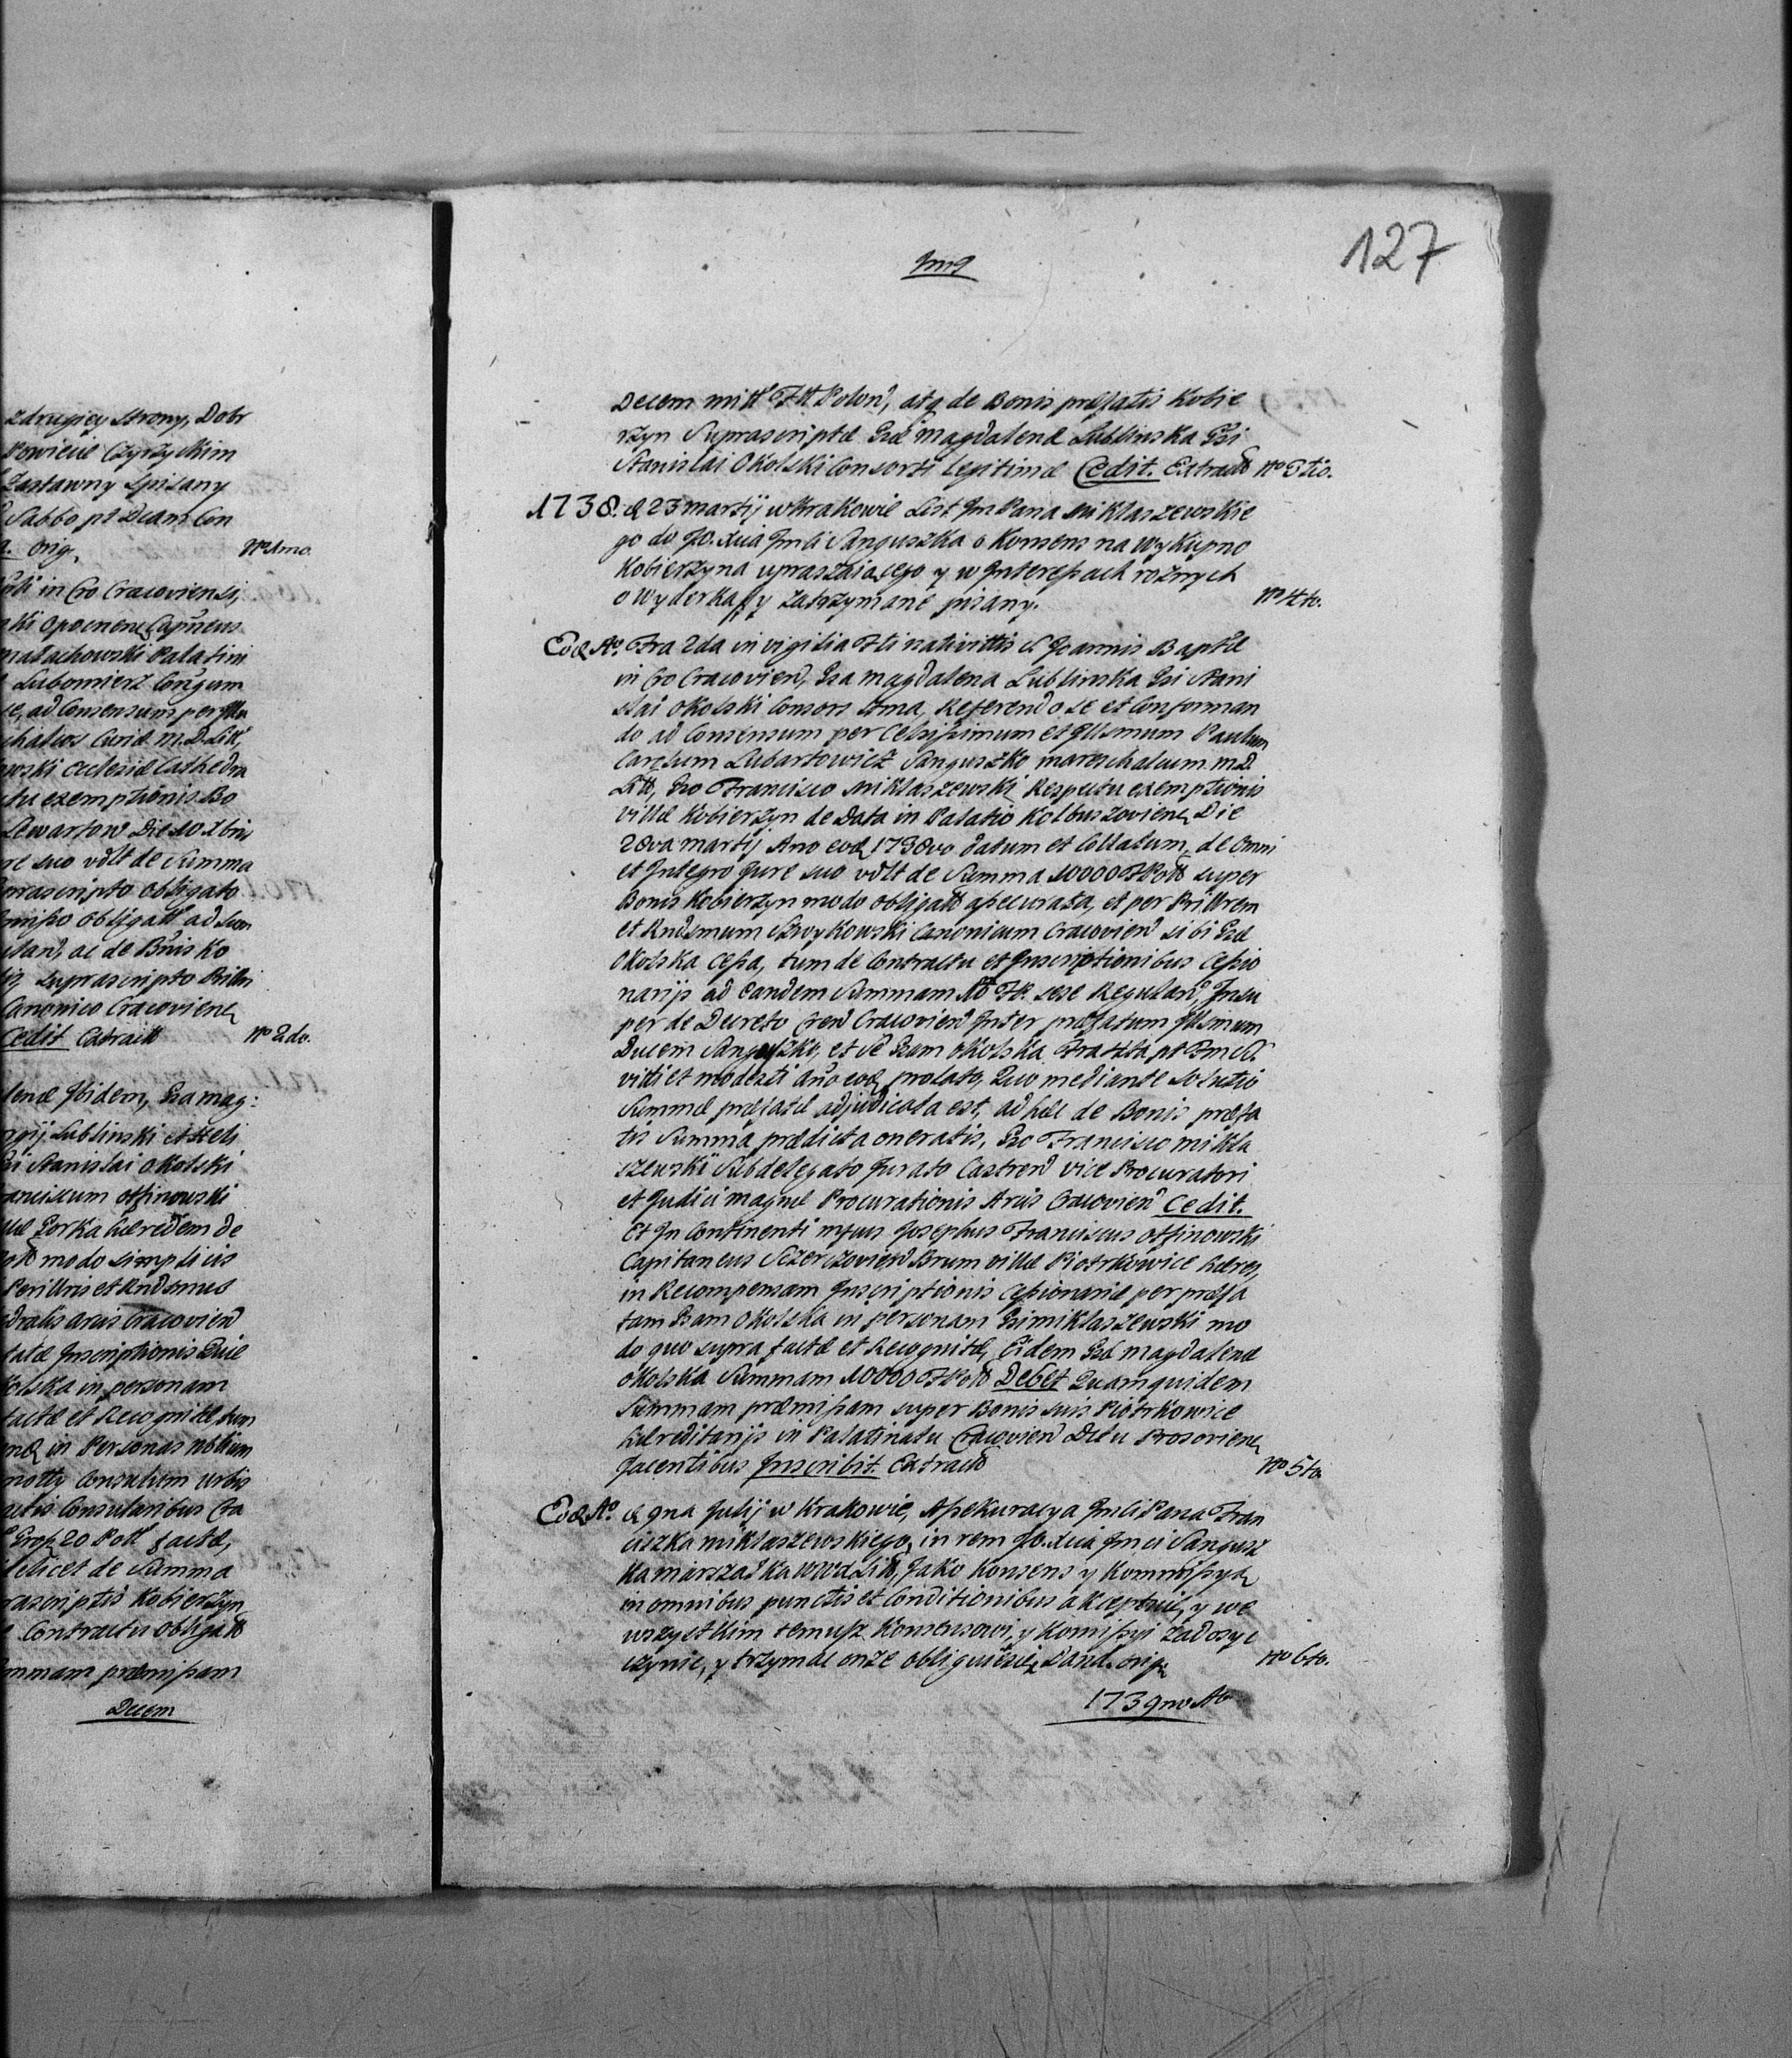 zdrugiey Strony, Dobr
Powiecie Czyrzyckim
Zastawny Spisany
Sabbo pt Dcam Con
orig.
No 1mo.
in Cro Cracoviensi,
ski Opocnen Capñeus
małachowski Palatini
Lubomierz Coñgum
se, ad Consensum per
chalcos Curiæ M. D. Litt,
wski Ecclesiæ Cathedra
ctu exemptionis Bo
Lewartow Die 10 Xbris
re suo vôlt de Summa
prascripto obligato
misso obligatt ad Sum
ac de Bnis Ko
Suprascripto Prilłri
Canonico Cracovien
Cedit Extractt
No 2do.
lenæ Ibidem, Gsa mag:
Lublinski et Heli
Gsi Stanislai Okolski
anciscum Otfinowski
Gorka hæredem de
modo simplicis
Perillris et Rndsmus
dralis arcis Cracovien
tatæ Inscriptionis Quie
Kolska in personam
factæ et Recognitæ tum
in Personas nbłium
Consulum Urbis
actis Consularibus Cra
Grosz 20 Poll factæ,
licet de Summa
rascriptis Kobierzyn
Contractu obligatt
ummam præmissam
Decem
127
Decem mill Fll Polon, atq de Bonis præfatis Kobie
rzyn Suprascriptæ Gsæ Magdalenæ Lublinska Gsi
Stanislai Okolski Consorti legitimæ Cedit. Extractt No 3tio.
1738. d 23 martij w Krakowie List Jm Pana Miklaszewskie
go do Jo. Xcia Jmći Sanguszka o Konsens na wykupno
Kobierzyna upraszaiącego y w Interessach roznych
o wyderkaffy zatrzymane pisany.
No 4to.
Eod Ao. Fra 2da in vigilia Fti nativittis S Joannis Baptæ
in Cro Cracovien, Gsa Magdalena Lublinska Gsi Stani
slai Okolski Consors ltma, Referendo se et Conforman
do ad Consensum per Celsissimum et Illsmum Paulum
Carolum Lubartowicz Sanguszko mareschalcum M.D.
Litt, Gso Francisco Miklaszewski Respectu exemptionis
villæ Kobierzyn de Data in Palatio Kolbuszovien Die
28va martij Ano eod 1738vo datum et Collatum, de Omni
et Integro Jure suo vôlt de Summa 10000 Fl Poll super
Bonis Kobierzyn modo obligatt assecurata, et per Prillrem
et Rndsmum Strzykowski Canonicum Cracovien sibi Gsæ
Okolska Cessa, tum de Contractu et Inscriptionibus Cessio
narijs ad eandem Summam sese Regulan, Insu
per de Decreto Cren Cracovien Inter præfatum Illsmum
Ducem Sanguszko, et se Gsam Okolska Fra pt
viti et modesti año eod prolato, Quo mediante Solutio
Summæ præfatæ adjudicata est, ad hæc de Bonis præfa
tis Summa prædicta oneratis, Gso Francisco Mikla
szewski Subdelegato Jurato Castren Vice Procuratori
et Judici magnæ Procurationis Arcis Cracovien Cedit.
Et In Continenti mfcus Josephus Franciscus Otfinowski
Capitaneus Szczerczovien Brum villæ Piotrkowice hæres,
in Recompensam Inscriptionis Cessionariæ per præfa
tam Gsam Okolska in personam Gsi Miklaszewski mo
do quo supra factæ et Recognitæ, Eidem Gsæ Magdalenæ
Okolska Summam 10000 Fl Poll Debet Quamquidem
Summam præmissam super Bonis suis Piotrkowice
hæreditarijs in Palatinatu Cracovien Dctu Prosovien
Jacentibus Inscribit. Extractt
No 5to.
Eod Ao. d 9na Julij w Krakowie, Assekuracya Jmći Pana Fran
ciszka Miklaszewskiego, in rem Jo. Xcia Jmci Sangusz
ka marszałka WWo Litt, Jako Konsens y Kommissyą
in omnibus punctis et Conditionibus akceptuie, y we
wszystkim temusz Konsensowi, y Komissyi Zadosyc
czynic, y trzymac onze obliguie się, Dana. orig
No 6to.
1739no Ao